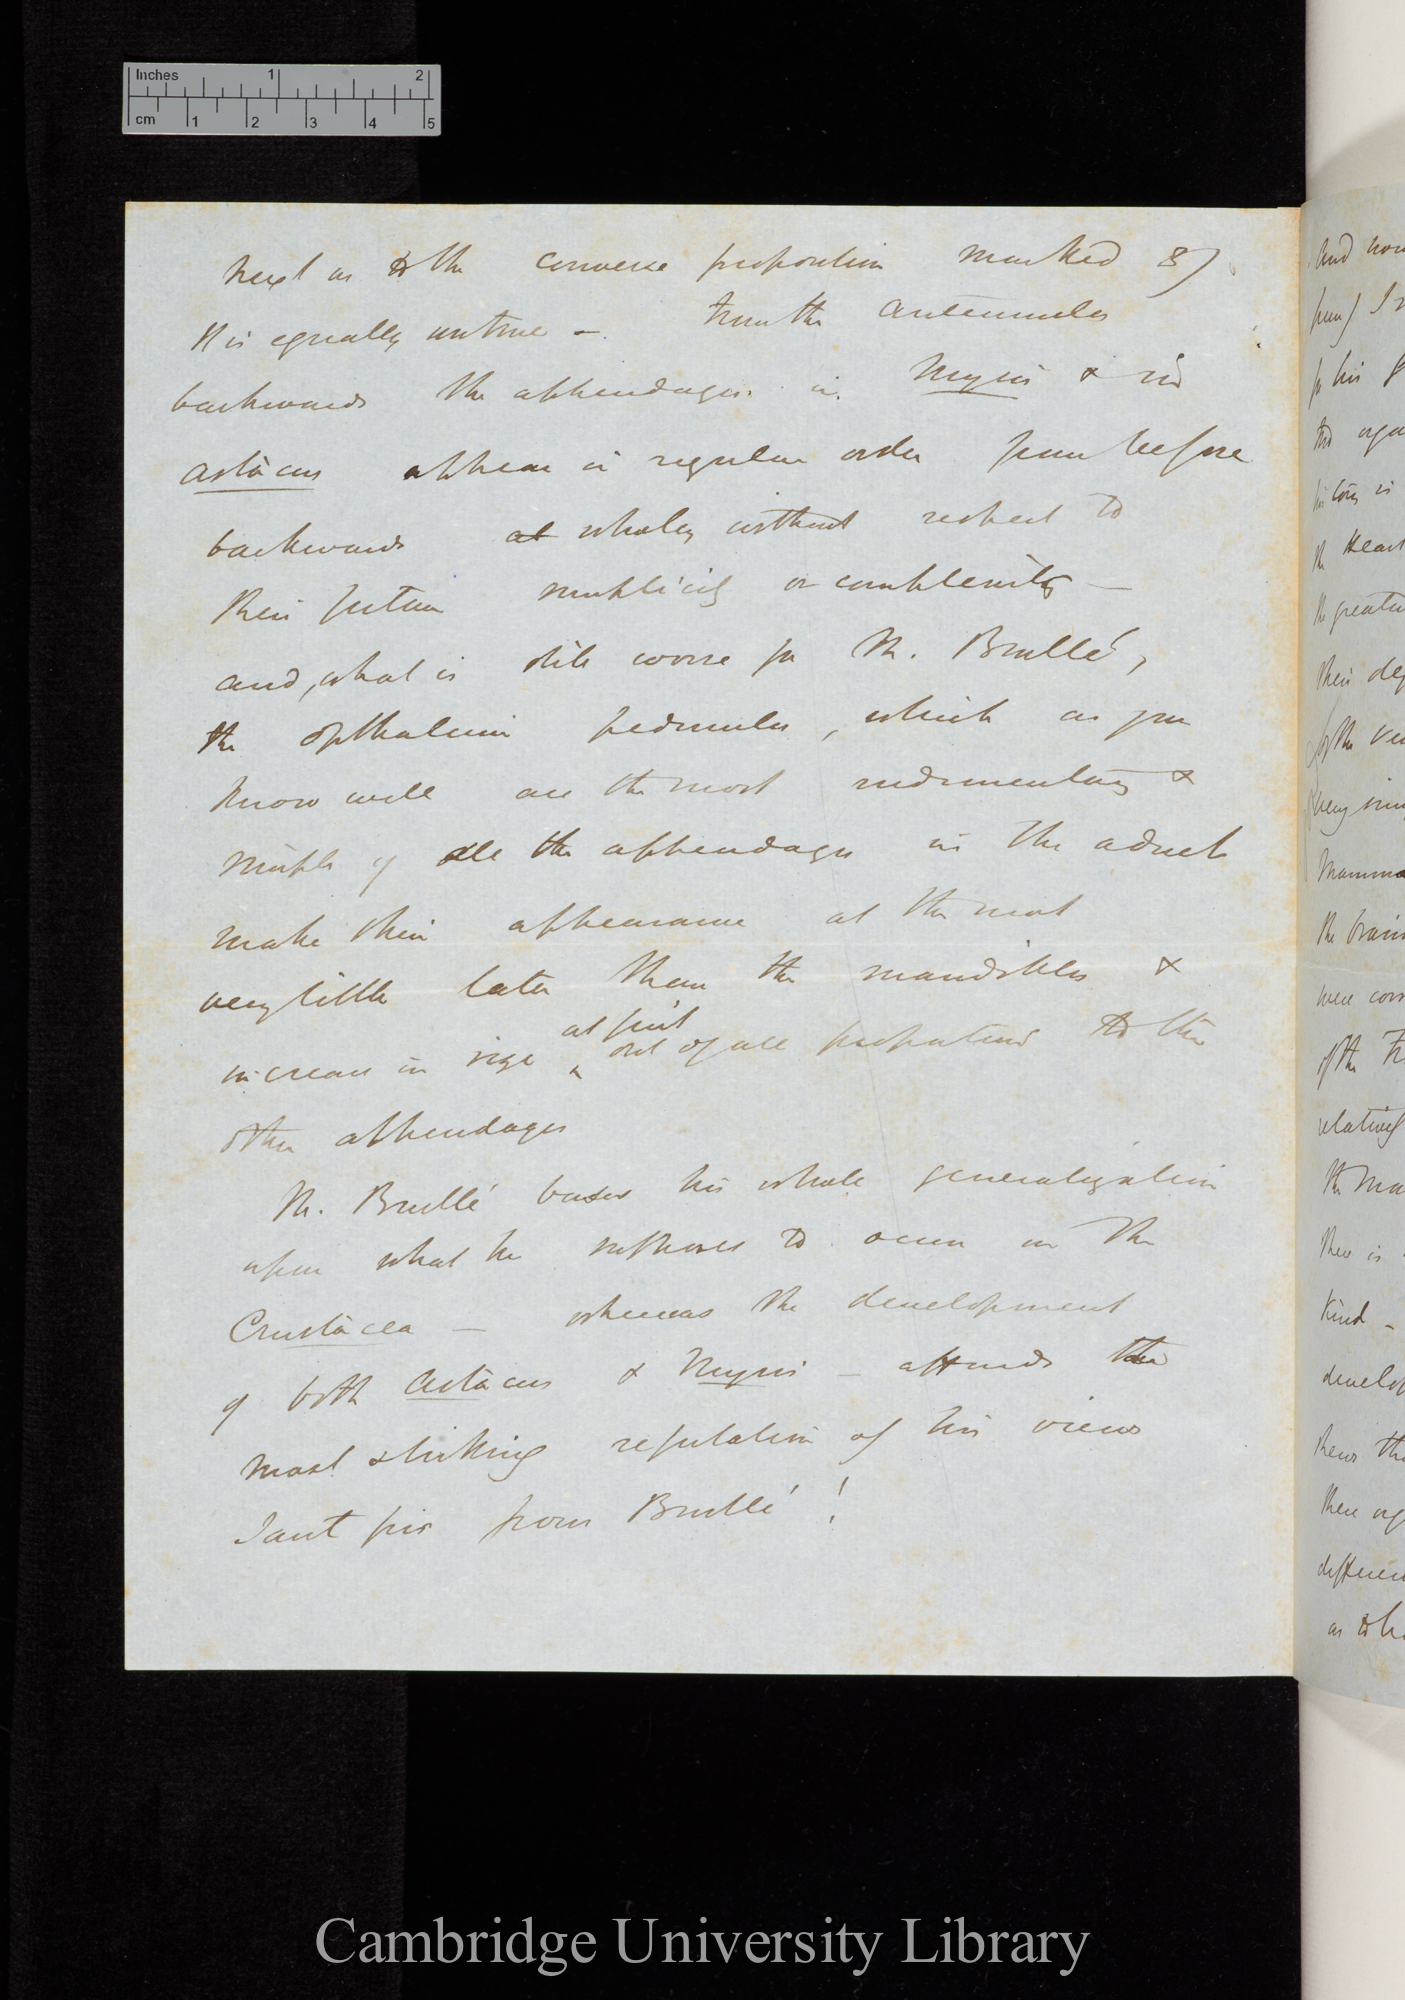 Inches 1 2
cm 1 2 3 4 5
Next as to the converse proposition marked 8)
It is equally untrue – From the antennules
backwards the appendages in Mysis & in
Astacus appear in regular order from before
backwards at wholly without respect to
their future simplicity or complexity –
and, what is still worse for M. Brullé,
the opthalmic peduncles, which as you
know well are the most rudimentary &
simple of all the appendages in the adult
make their appearance at the most
very little later than the mandibles &
increase in size at first out of all proportion to the
other appendages
M. Brullé bases his whole generalization
upon what he supposes to occur in the
Crustacea – whereas the development
of both Astacus & Mysis – affords the
most striking refutation of his views
Tant pis pour Brullé!
And
I
for his
this
is
the Heart
the greate
their de
of the ve
very
Mamma
the brain
were
of the
relativ
the
there is
Kind –
develo
there
differen
as
Cambridge University Library